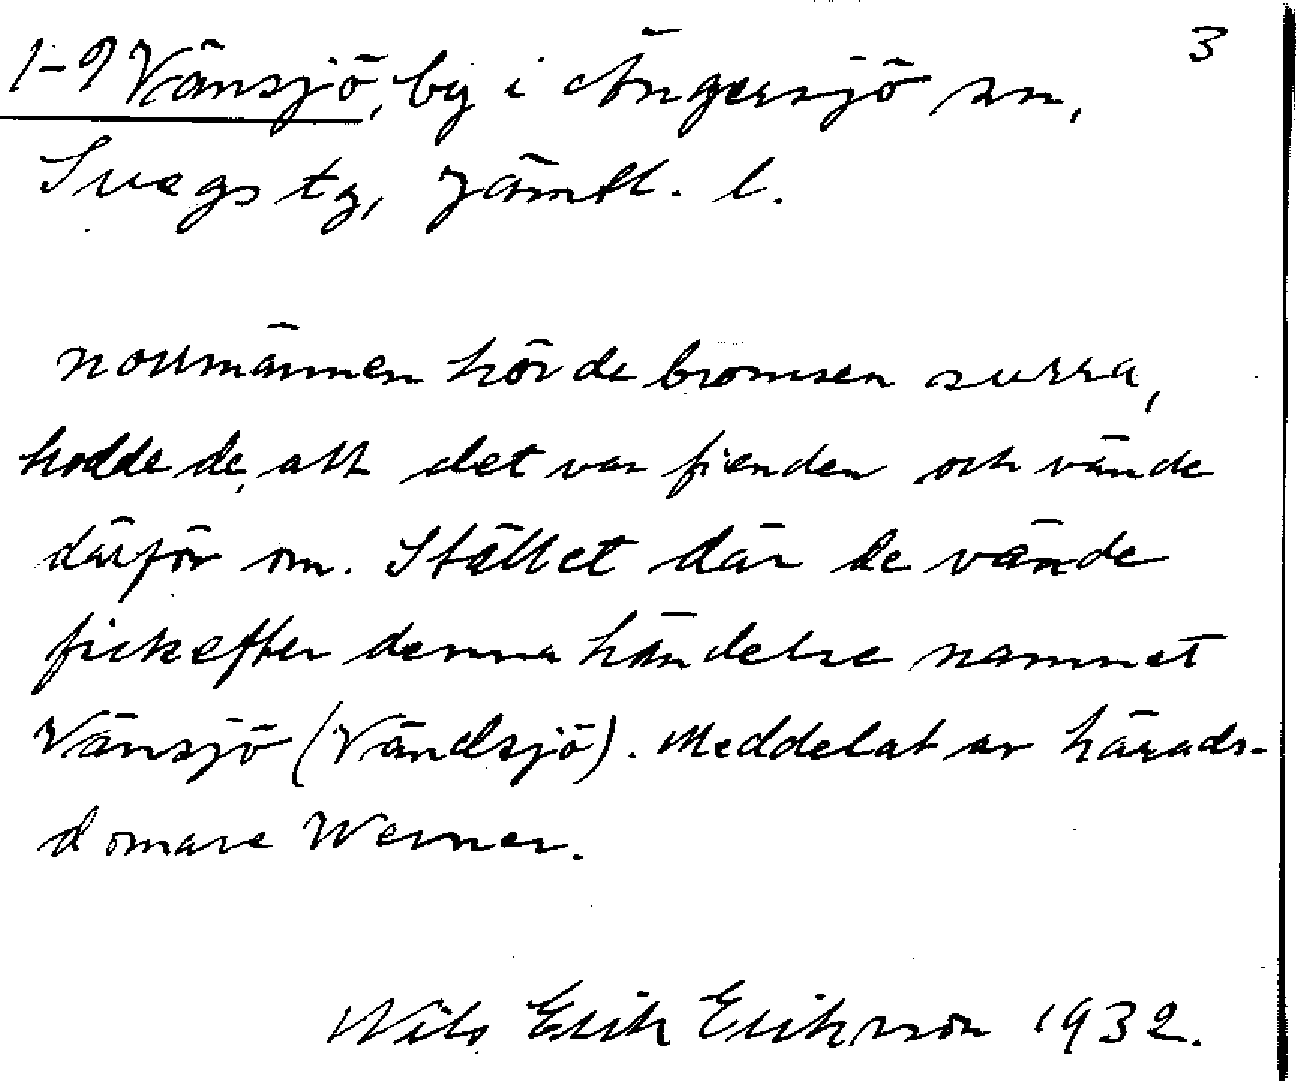 3
1-9 Vänsjö, by i Ängersjö sn,
Svegs tg, Jämtl. l.
norrmännen hörde bromsen surra,
trodde de, att det var fienden och vände
därför om. Stället där de vände
fick efter denna händelse namnet
Vänsjö (Vändsjö). Meddelat av härads-
domare Werner.
Nils Erik Eriksson 1932.